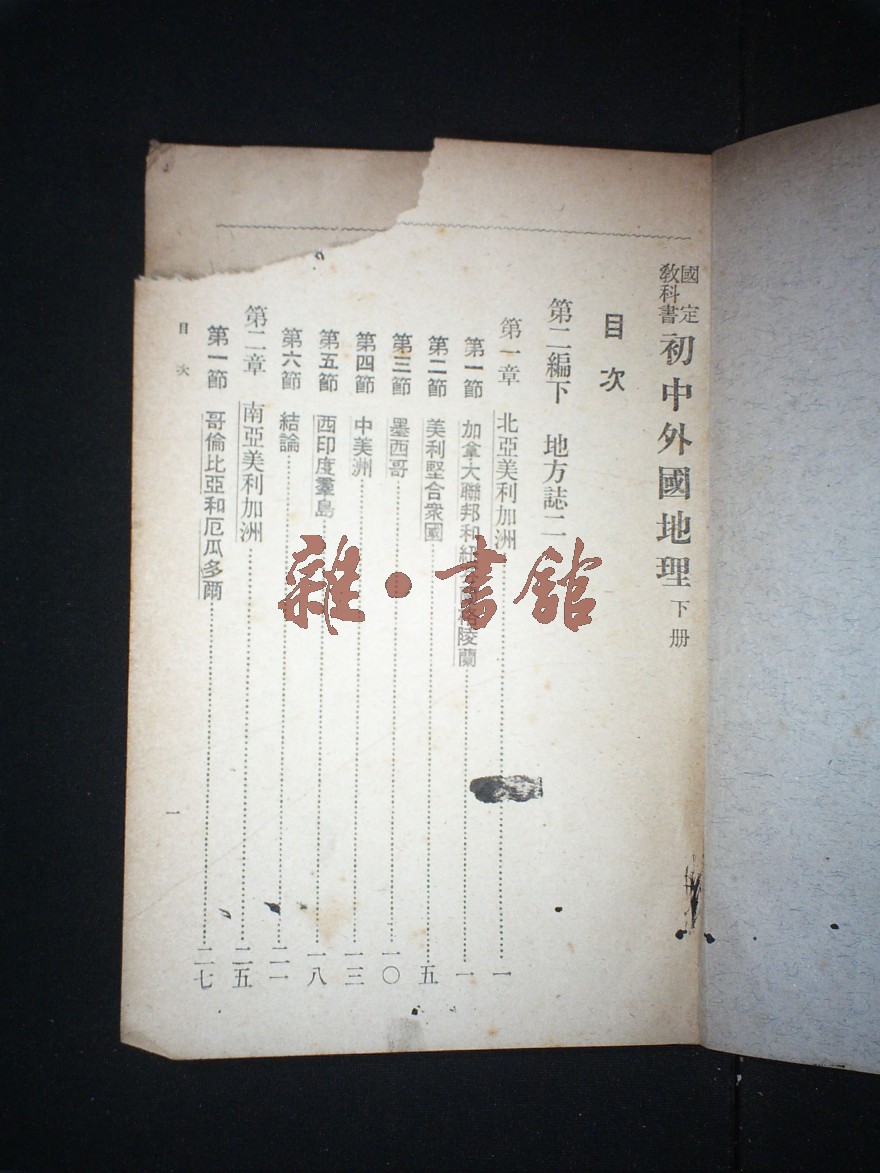 國定教科書 初中外國地理 下册
目次
第二編下 地方誌二
第一章 北亞美利加洲 一
第一節 加拿大聯邦和紐 陵蘭 一
第二節 美利堅合衆國 五
第三節 墨西哥 一〇
第四節 中美洲 一三
第五節 西印度羣島 一八
第六節 結論 二一
第二章 南亞美利加洲 二五
第一節 哥倫比亞和厄瓜多爾 二七
目次
一
雜·書館